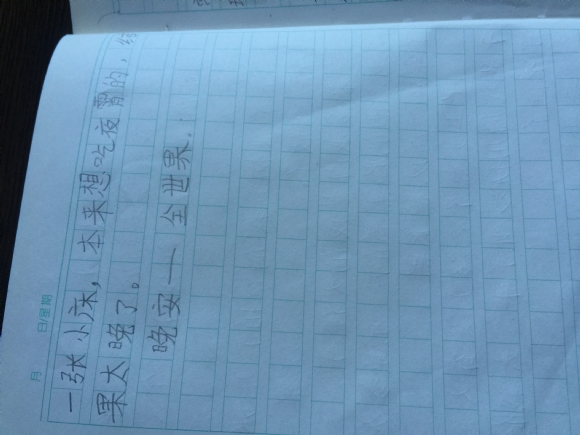 月 日/星期
一张小床，本来想吃夜霄的，结
果太晚了。
晚安——全世界.